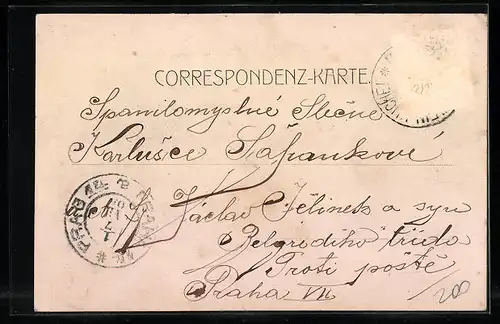 CORRESPONDENZ-KARTE.
Spanilomyslné Slečně
Karlušce Šafránkové
Václav Jelinek a syn
Belgrediho třída
Proti poště
Praha VII
PRAG
200